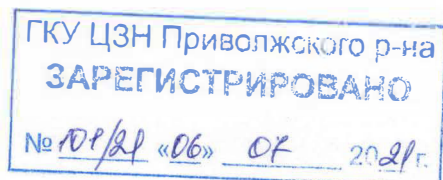 ГКУ ЦЗН Приволжского р-на
ЗАРЕГИСТРИРОВАНО
№ 101/21 «06» 07 2021 г.